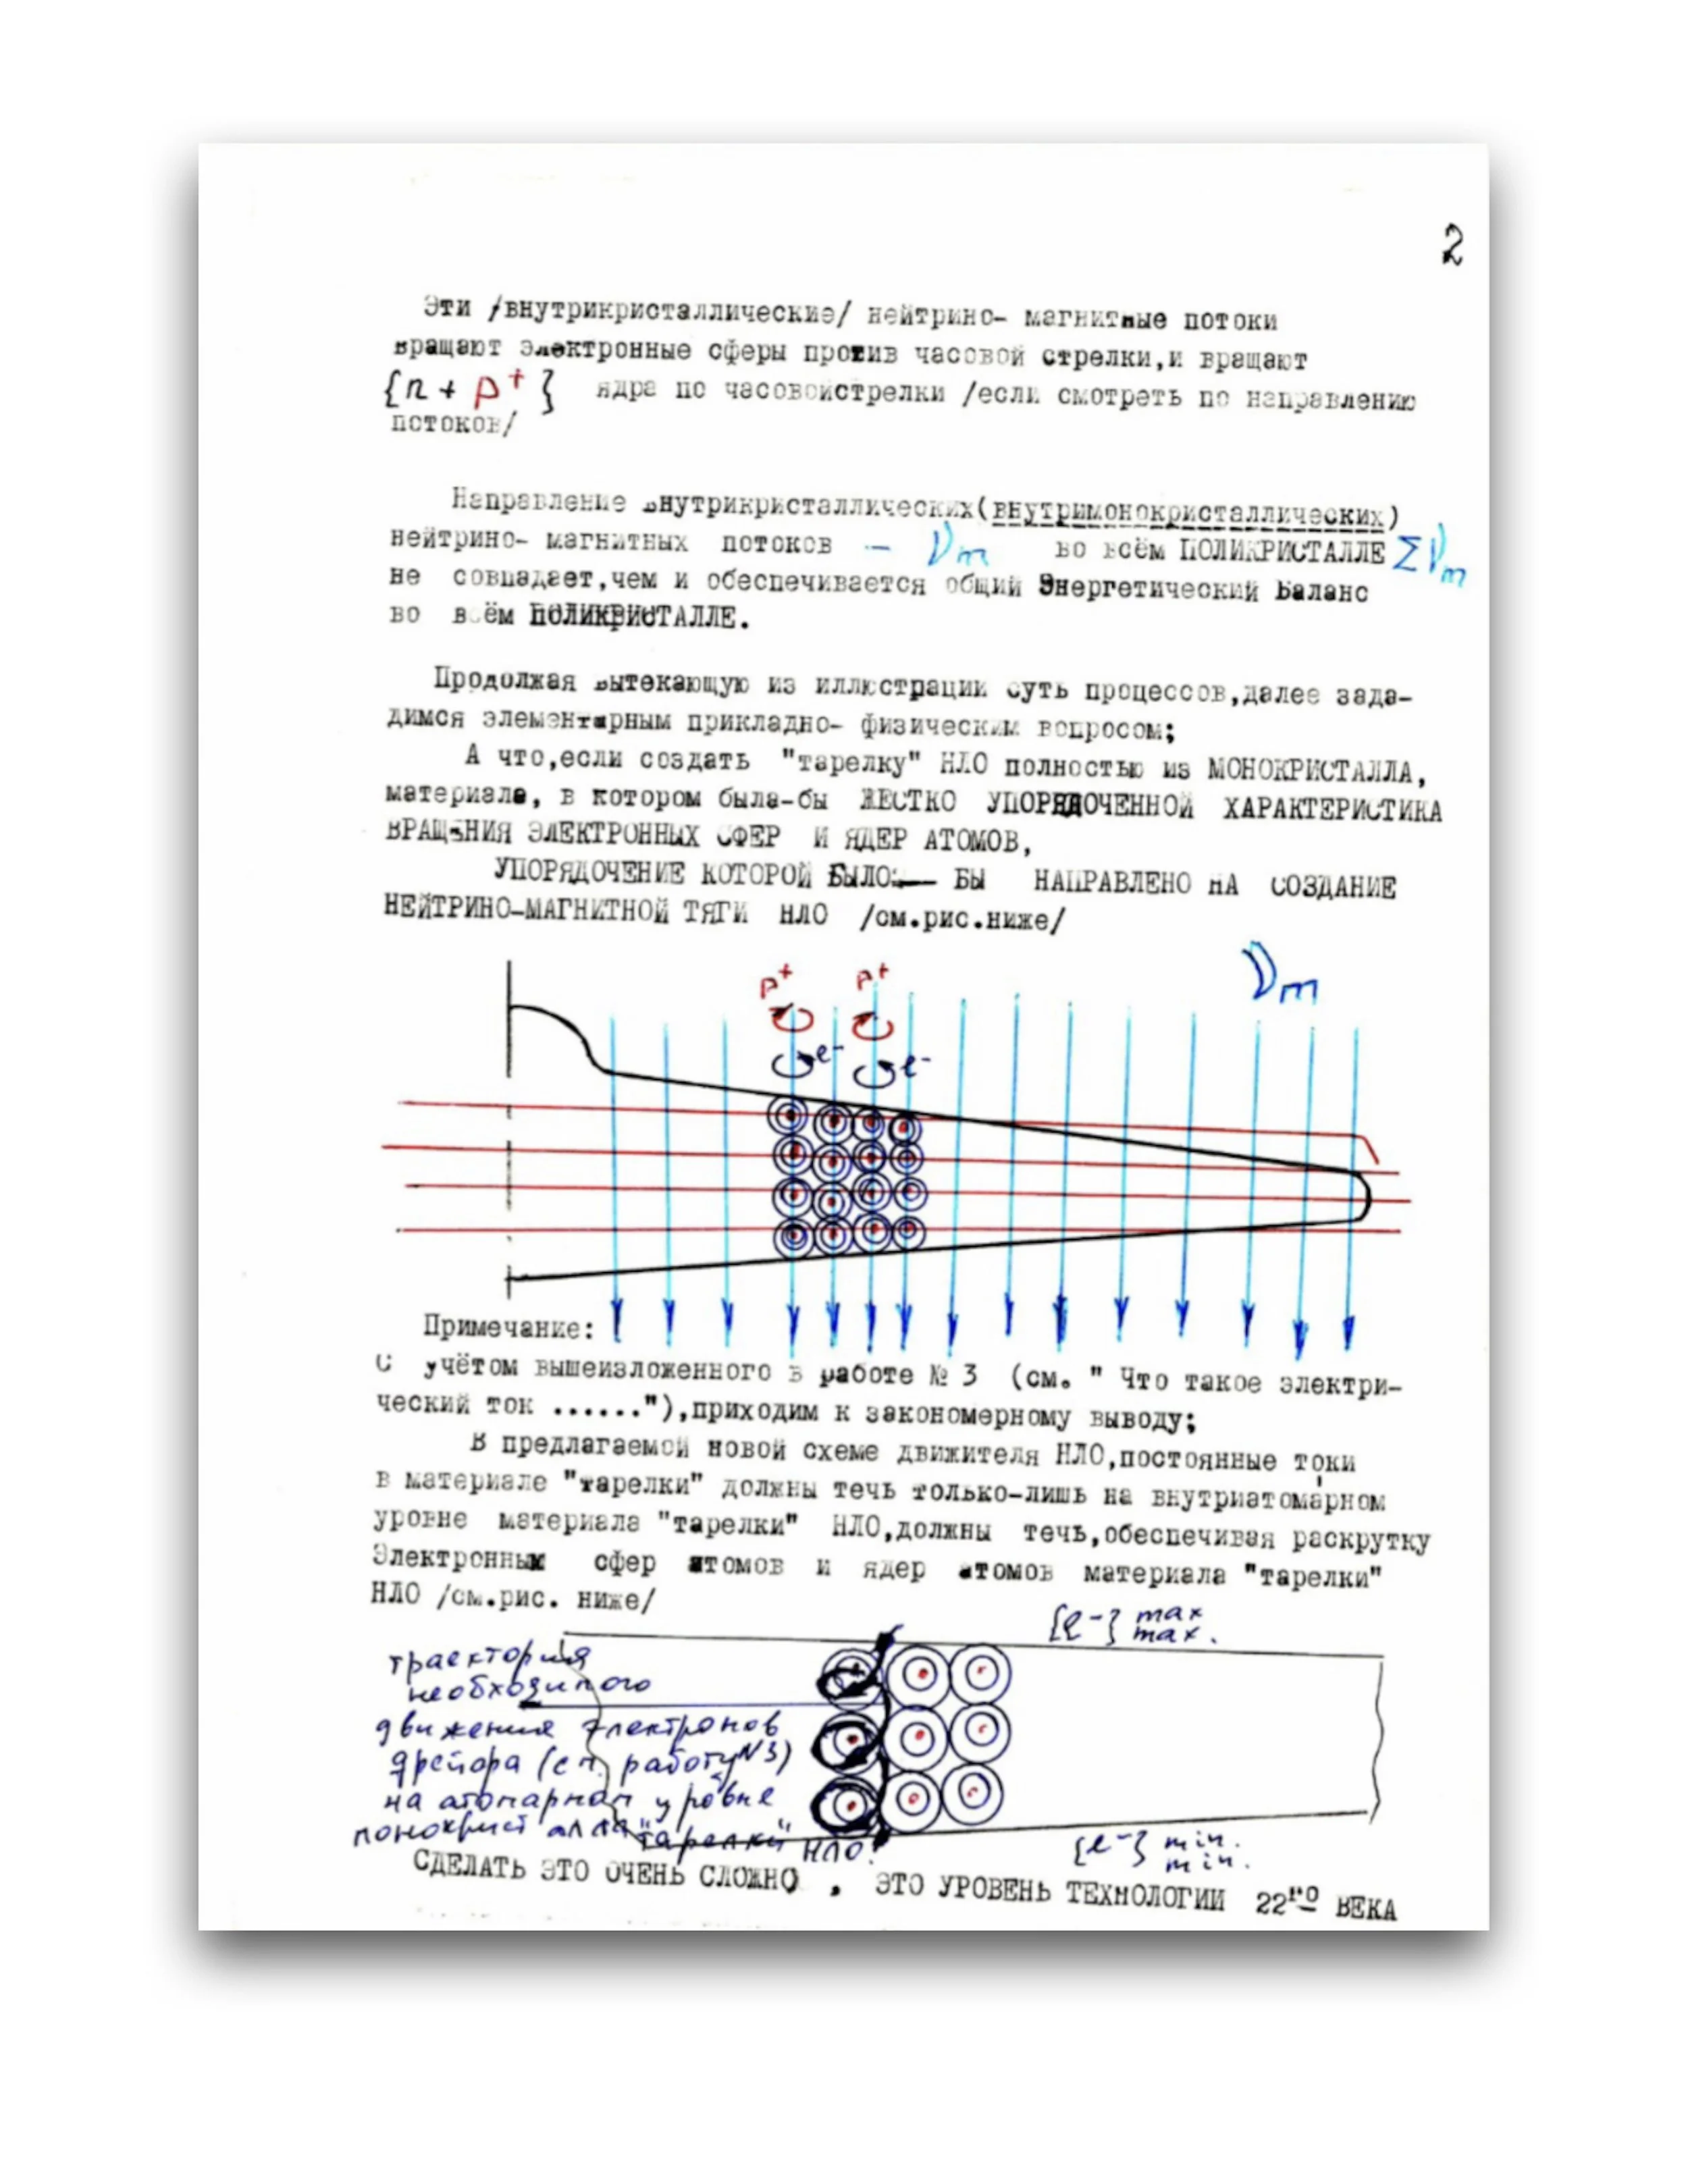 2
Эти /внутрикристаллические/ нейтрино- магнитные потоки
вращают электронные сферы против часовой стрелки,и вращают
{n + p⁺} ядра по часовойстрелки /если смотреть по направлению
потоков/
Направление внутрикристаллических(внутримонокристаллических)
нейтрино- магнитных потоков - νm во всём ПОЛИКРИСТАЛЛЕ Σνm
не совпадает,чем и обеспечивается общий Энергетический Баланс
во всём ПОЛИКРИСТАЛЛЕ.
Продолжая вытекающую из иллюстрации суть процессов,далее зада-
димся элементарным прикладно- физическим вопросом;
А что,если создать "тарелку" НЛО полностью из МОНОКРИСТАЛЛА,
материала, в котором была-бы ЖЕСТКО УПОРЯДОЧЕННОЙ ХАРАКТЕРИСТИКА
ВРАЩЕНИЯ ЭЛЕКТРОННЫХ СФЕР И ЯДЕР АТОМОВ,
УПОРЯДОЧЕНИЕ КОТОРОЙ БЫЛО БЫ НАПРАВЛЕНО НА СОЗДАНИЕ
НЕЙТРИНО-МАГНИТНОЙ ТЯГИ НЛО /см.рис.ниже/
p⁺ p⁺ νm
e⁻ e⁻
Примечание:
С учётом вышеизложенного в работе № 3 (см. " Что такое электри-
ческий ток ......"),приходим к закономерному выводу;
В предлагаемой новой схеме движителя НЛО,постоянные токи
в материале "тарелки" должны течь только-лишь на внутриатомарном
уровне материала "тарелки" НЛО,должны течь,обеспечивая раскрутку
Электронных сфер атомов и ядер атомов материала "тарелки"
НЛО /см.рис. ниже/
{e⁻} max
max.
траектория
необходимого
движения электронов
дрейфа (см. работу N3)
на атомарном уровне
монокристалла "тарелки" НЛО.
{e⁻} min.
min.
СДЕЛАТЬ ЭТО ОЧЕНЬ СЛОЖНО , ЭТО УРОВЕНЬ ТЕХНОЛОГИИ 22го ВЕКА